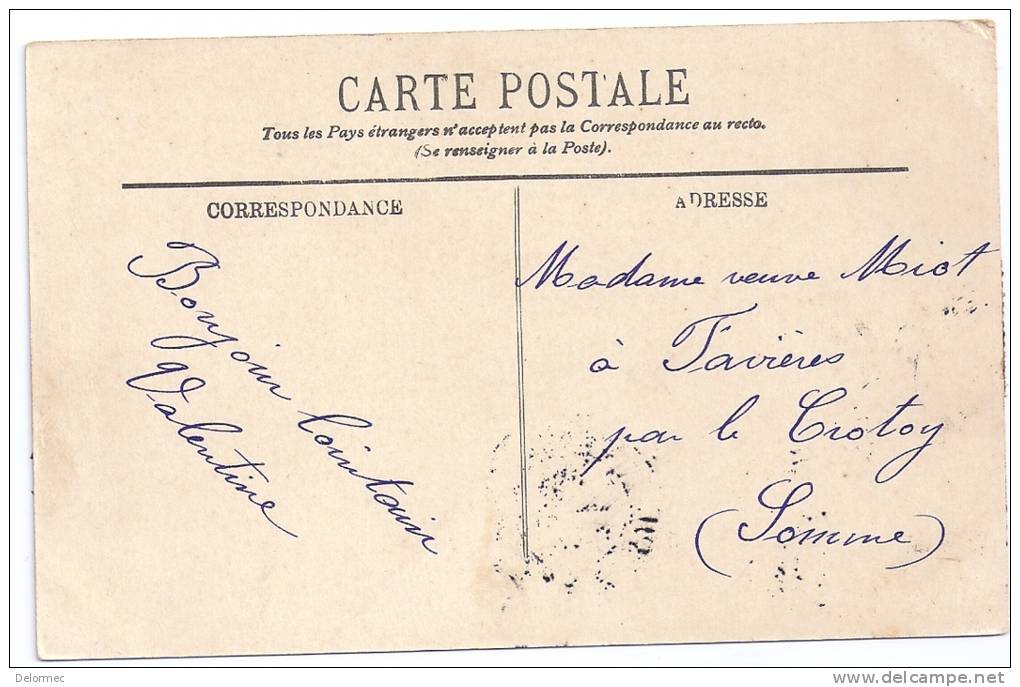 CARTE POSTALE
Tous les Pays étrangers n'acceptent pas la Correspondance au recto.
(Se renseigner à la Poste).
CORRESPONDANCE
Bonjour lointain
Valentine
ADRESSE
Madame veuve Miot
à Favières
par le Crotoy
(Somme)
Delormec
www.delcampe.net